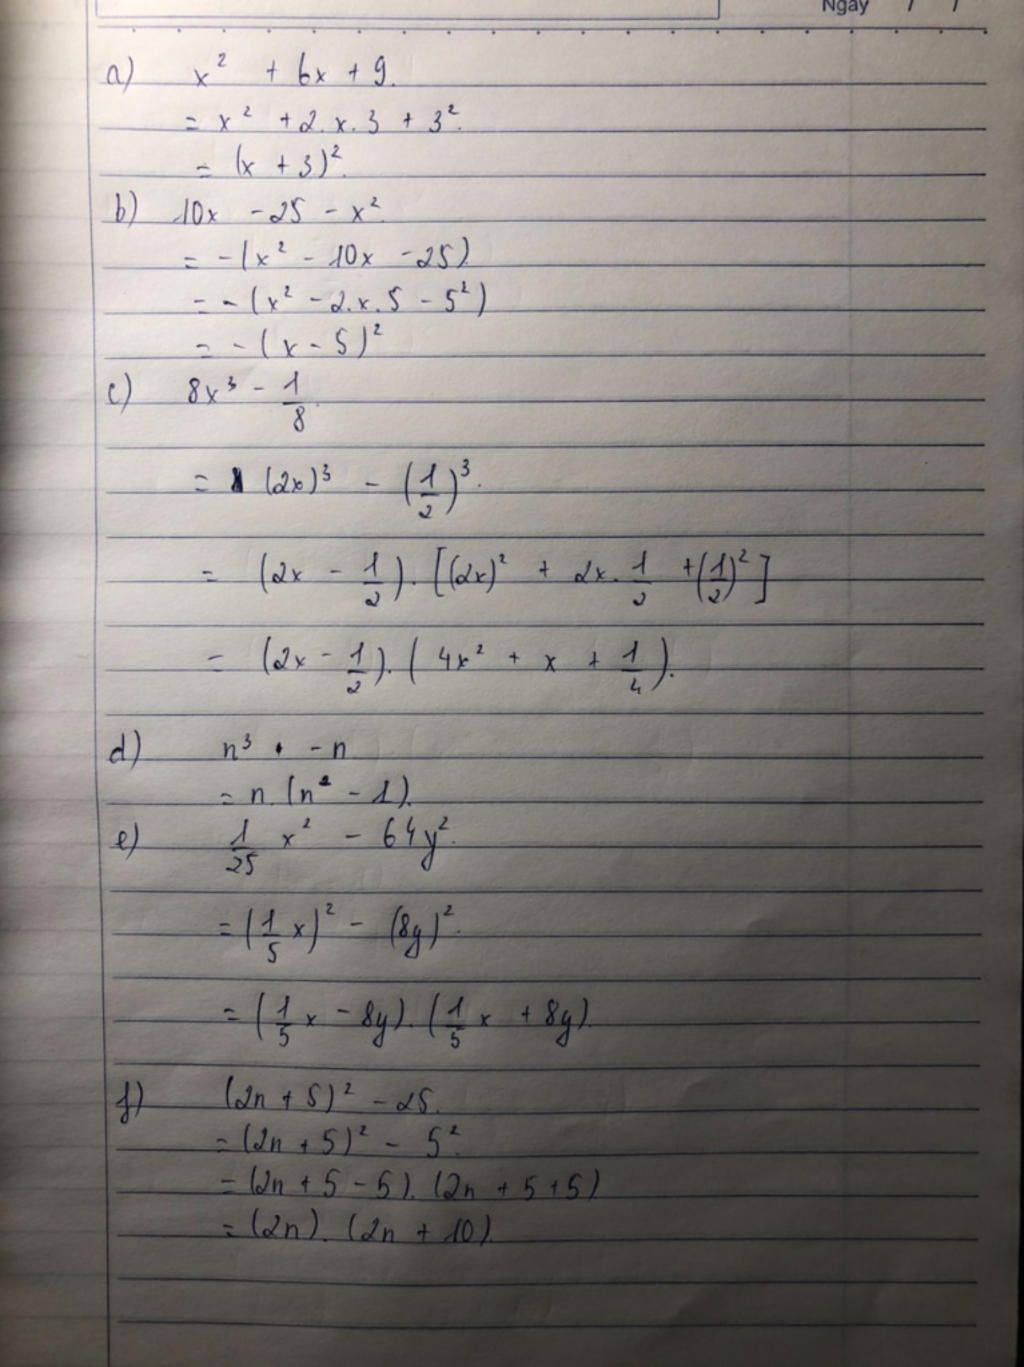 Ngày / /
a) x² + 6x + 9.
= x² + 2.x.3 + 3².
= (x + 3)².
b) 10x - 25 - x²
= -(x² - 10x - 25)
= -(x² - 2.x.5 - 5²)
= -(x - 5)²
c) 8x³ - 1/8.
= (2x)³ - (1/2)³.
= (2x - 1/2).[(2x)² + 2x.1/2 + (1/2)²]
= (2x - 1/2).(4x² + x + 1/4).
d) n³ - n
= n.(n² - 1).
e) 1/25 x² - 64y².
= (1/5 x)² - (8y)².
= (1/5 x - 8y).(1/5 x + 8y)
f) (2n + 5)² - 25.
= (2n + 5)² - 5².
= (2n + 5 - 5).(2n + 5 + 5)
= (2n).(2n + 10)